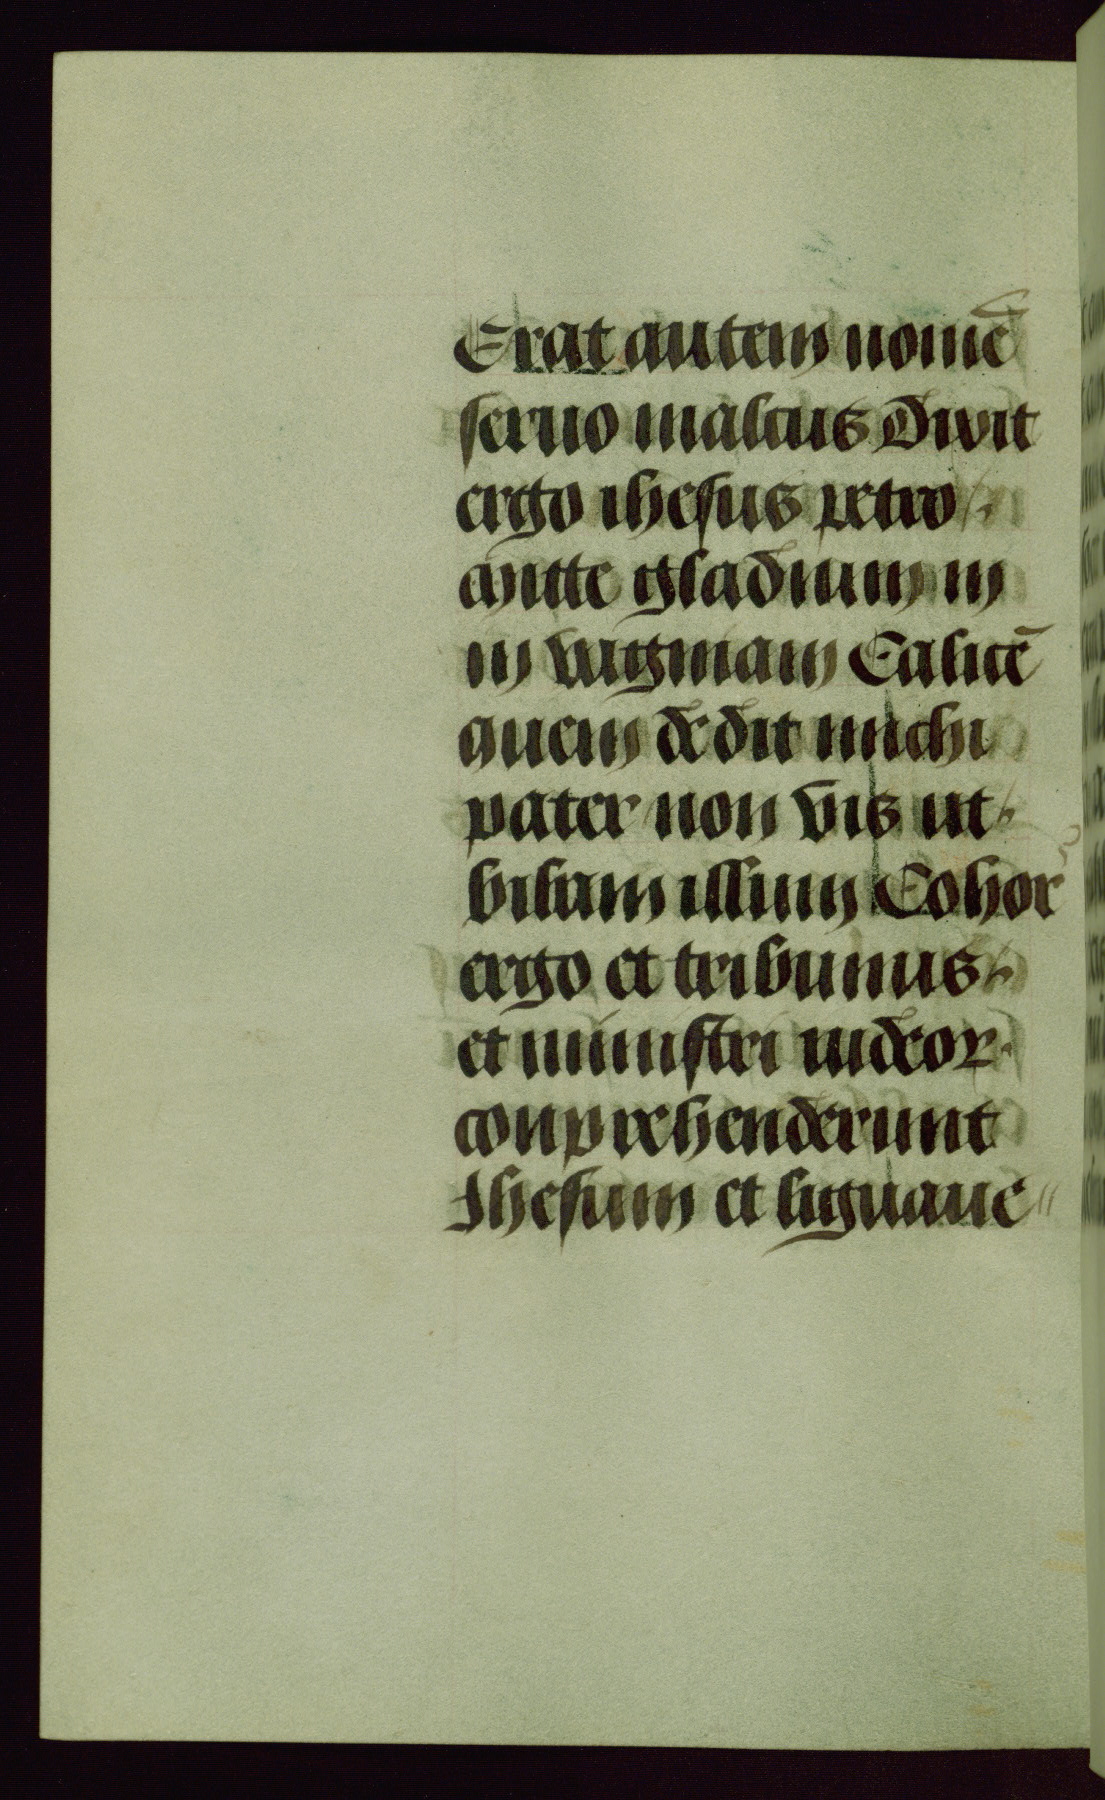 Erat autem nomē
seruo malcus Dixit
ergo ihesus petro
mitte gladium in
in vaginam Calicē
quem dedit michi
pater non vis ut
bibam illum Cohor̄
ergo et tribunus
et ministri iudeoꝝ
conprehenderunt
Ihesum et liguaue